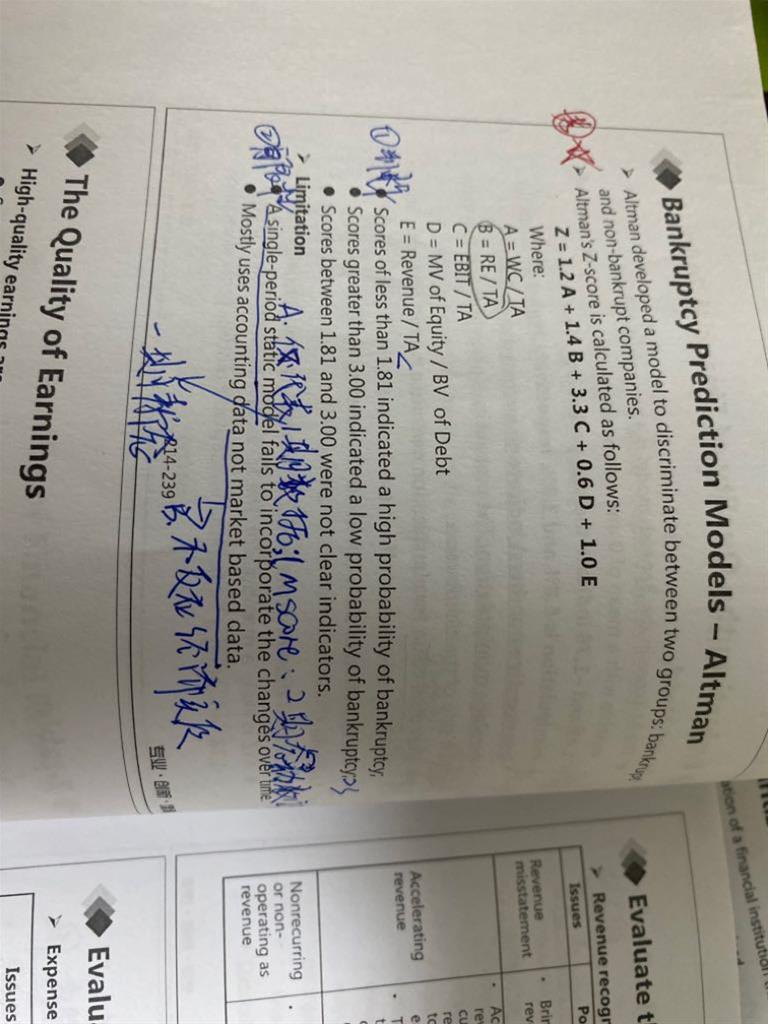 Bankruptcy Prediction Models – Altman
➢ Altman developed a model to discriminate between two groups: bankrupt
and non-bankrupt companies.
➢ Altman's Z-score is calculated as follows:
Z = 1.2 A + 1.4 B + 3.3 C + 0.6 D + 1.0 E
Where:
A = WC / TA
B = RE / TA
C = EBIT / TA
D = MV of Equity / BV of Debt
E = Revenue / TA
① 判断
• Scores of less than 1.81 indicated a high probability of bankruptcy;
• Scores greater than 3.00 indicated a low probability of bankruptcy;
• Scores between 1.81 and 3.00 were not clear indicators.
➢ Limitation
A. 仅代表1期数据; (M score: 2期
② 局限性
• A single-period static model fails to incorporate the changes over time
• Mostly uses accounting data not market based data.
14-239
B. 不反应经济实质
专业 · 创新
The Quality of Earnings
➢ High-quality earnings are
Evaluate t
➢ Revenue recogn
Issues
Po
Revenue
misstatement
Accelerating
revenue
Nonrecurring
or non-
operating as
revenue
Evalu
➢ Expense
Issues
ation of a financial institution